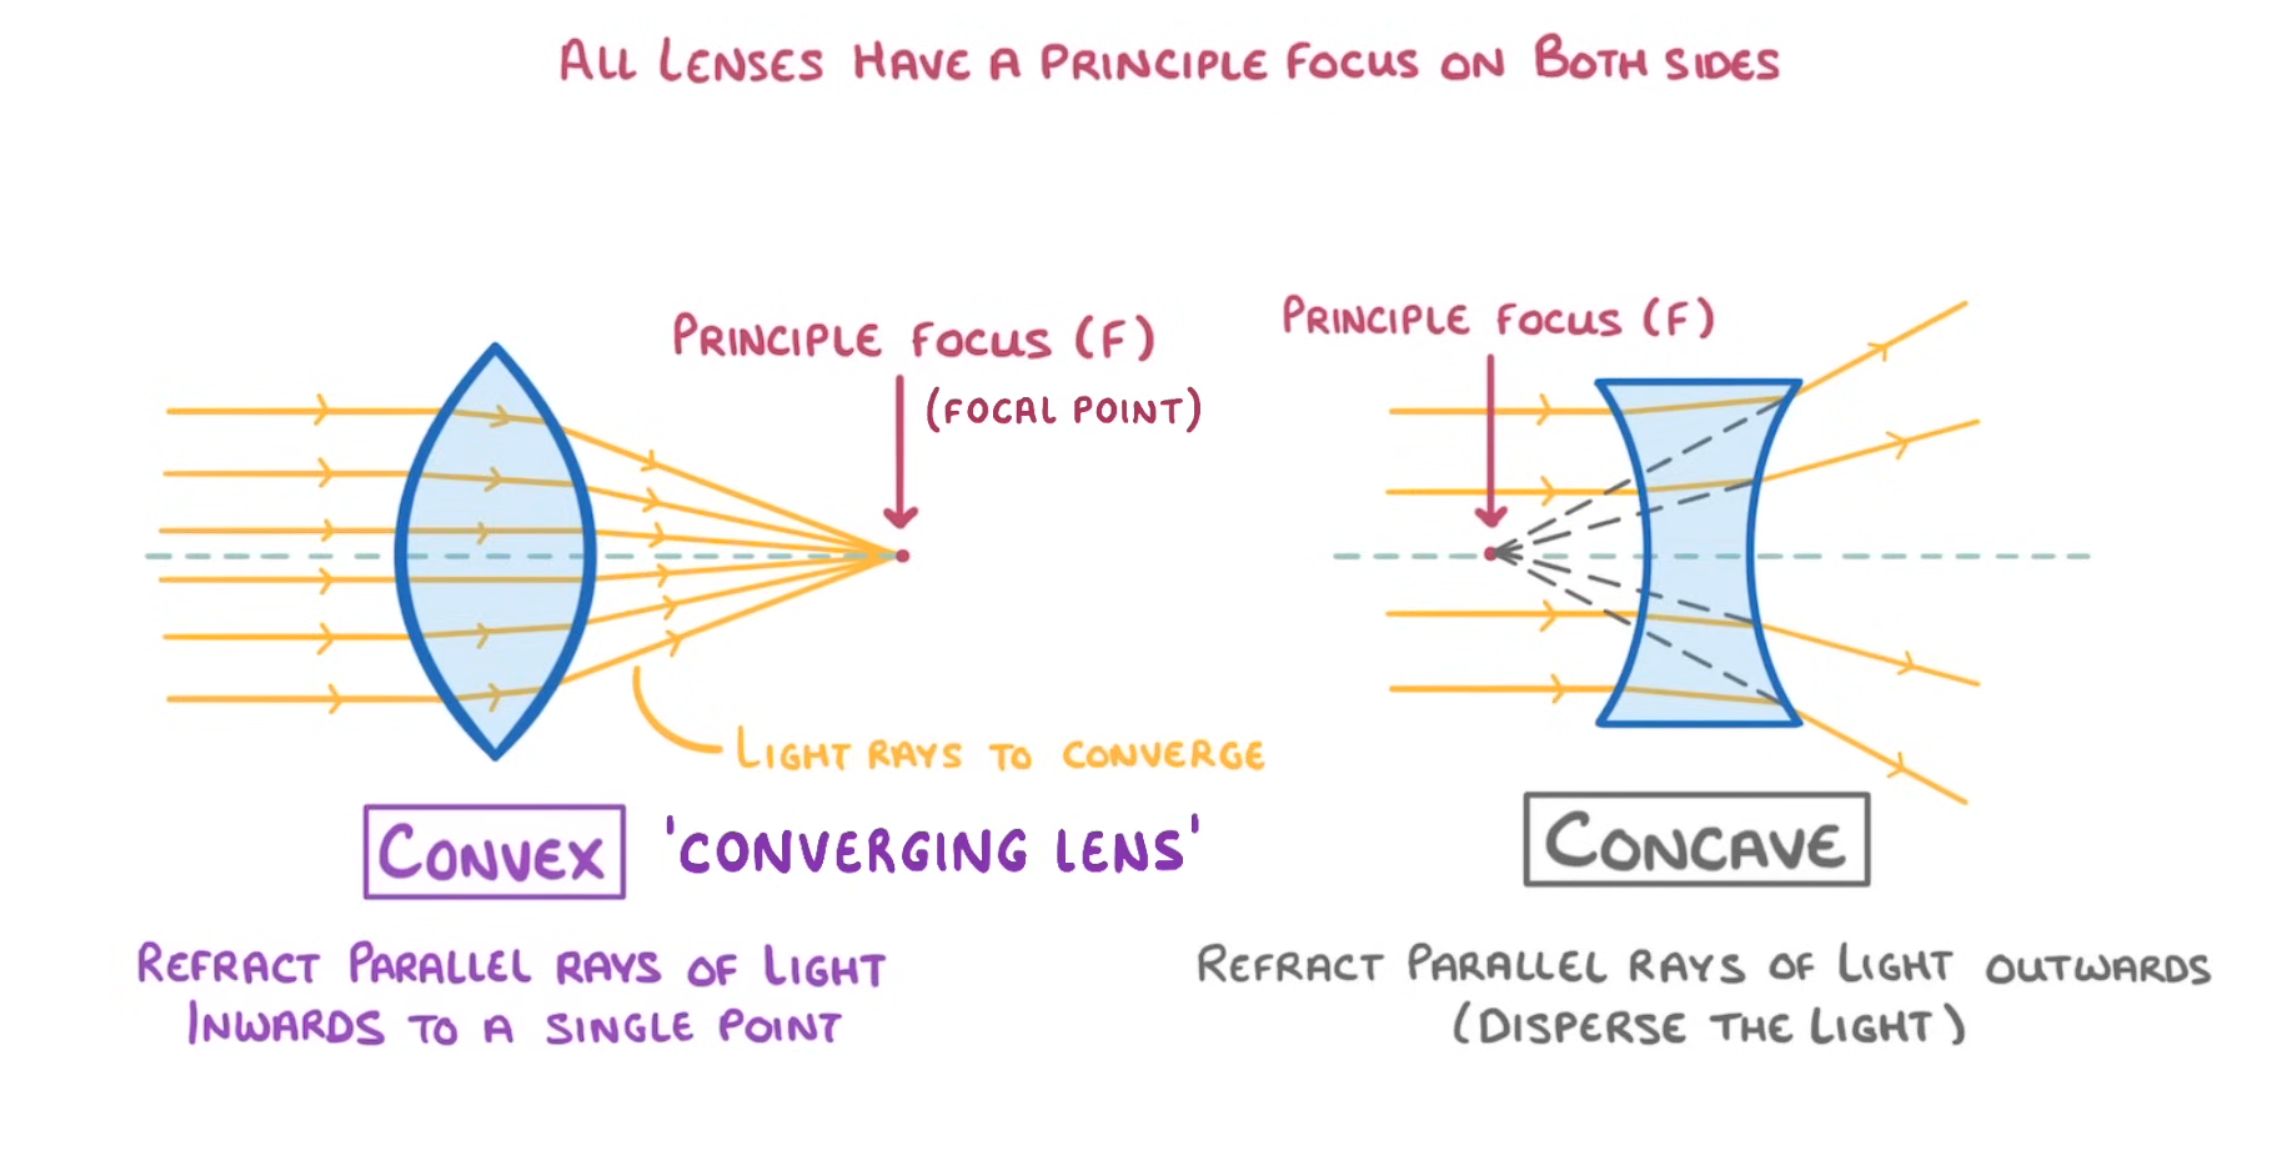 ALL LENSES HAVE A PRINCIPLE FOCUS ON BOTH SIDES
PRINCIPLE FOCUS (F)
(FOCAL POINT)
LIGHT RAYS TO CONVERGE
CONVEX
'CONVERGING LENS'
REFRACT PARALLEL RAYS OF LIGHT
INWARDS TO A SINGLE POINT
PRINCIPLE FOCUS (F)
CONCAVE
REFRACT PARALLEL RAYS OF LIGHT OUTWARDS
(DISPERSE THE LIGHT)